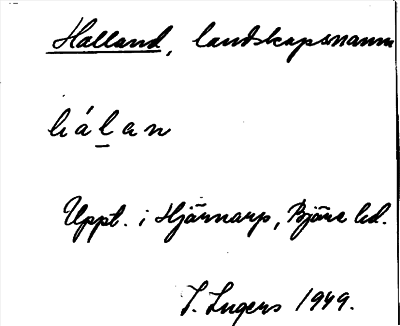 Halland, landskapsnamn
hálan
Uppt. i Hjärnarp, Bjäre hd.
J. Ingers 1949.